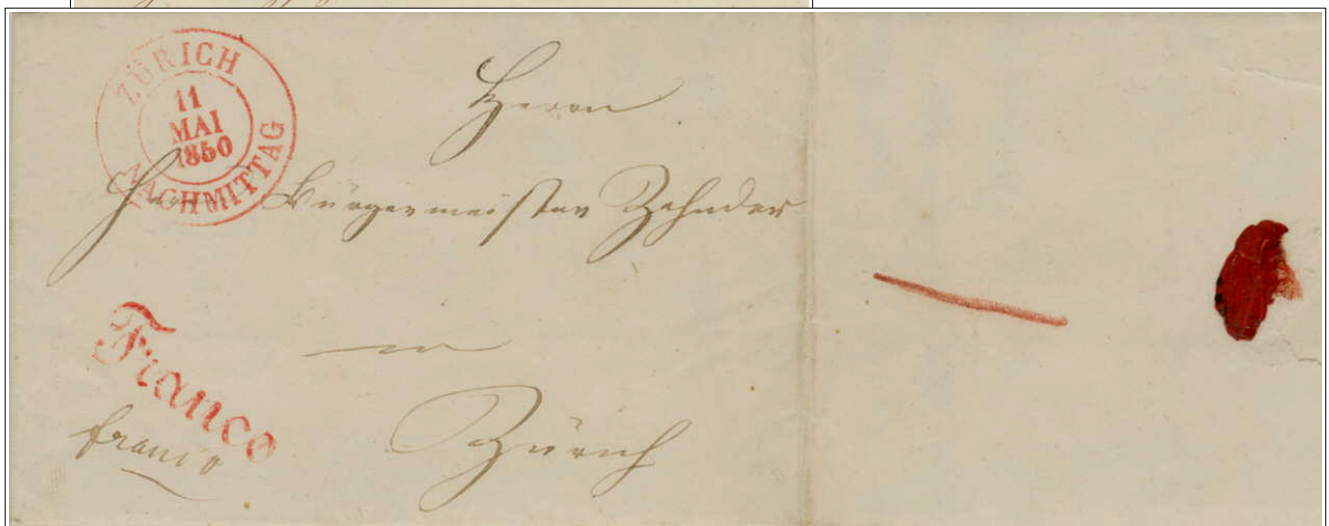 ZÜRICH
11
MAI
1850
NACHMITTAG
Herrn
Herrn Bürgermeister Zehnder
in
Zürich
Franco
franco